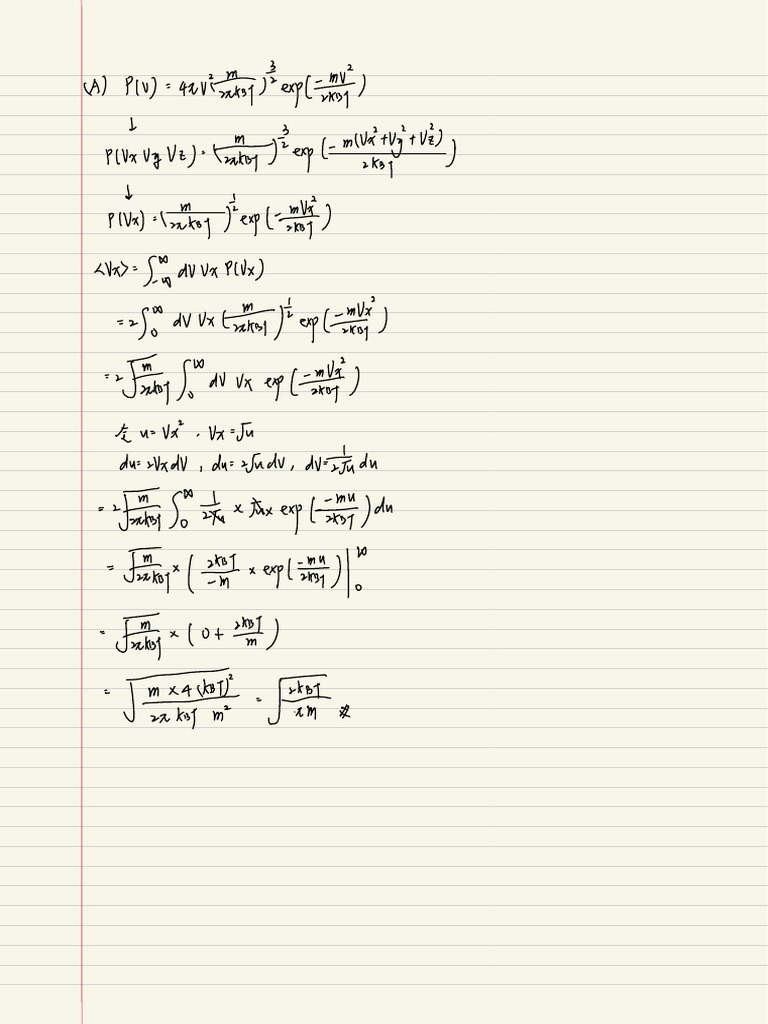 (A) P(V) = 4πV²(m/2πkBT)^(3/2) exp(-mV²/2kBT)
↓
P(Vx Vy Vz) = (m/2πkBT)^(3/2) exp(-m(Vx²+Vy²+Vz²)/2kBT)
↓
P(Vx) = (m/2πkBT)^(1/2) exp(-mVx²/2kBT)
<Vx> = ∫_{-∞}^{∞} dV Vx P(Vx)
= 2∫_0^∞ dV Vx (m/2πkBT)^(1/2) exp(-mVx²/2kBT)
= 2√(m/2πkBT) ∫_0^∞ dV Vx exp(-mVx²/2kBT)
令 u = Vx² , Vx = √u
du = 2Vx dV , du = 2√u dV, dV = 1/(2√u) du
= 2√(m/2πkBT) ∫_0^∞ 1/(2√u) × √u × exp(-mu/2kBT) du
= √(m/2πkBT) × (2kBT/-m × exp(-mu/2kBT))|_0^∞
= √(m/2πkBT) × (0 + 2kBT/m)
= √(m × 4(kBT)²/2π kBT m²) = √(2kBT/πm) #